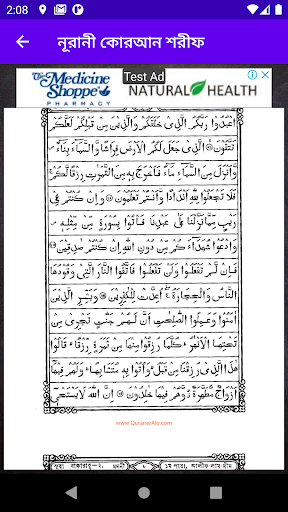 2:08
নূরানী কোরআন শরীফ
The Medicine Shoppe PHARMACY
Test Ad
NATURAL HEALTH
اعْبُدُوْا رَبَّكُمُ الَّذِىْ خَلَقَكُمْ وَالَّذِيْنَ مِنْ قَبْلِكُمْ لَعَلَّكُمْ
تَتَّقُوْنَ الَّذِىْ جَعَلَ لَكُمُ الْاَرْضَ فِرَاشًا وَّالسَّمَآءَ بِنَآءً
وَّاَنْزَلَ مِنَ السَّمَآءِ مَآءً فَاَخْرَجَ بِهٖ مِنَ الثَّمَرٰتِ رِزْقًا لَّكُمْ
فَلَا تَجْعَلُوْا لِلّٰهِ اَنْدَادًا وَّاَنْتُمْ تَعْلَمُوْنَ وَاِنْ كُنْتُمْ فِىْ
رَيْبٍ مِّمَّا نَزَّلْنَا عَلٰى عَبْدِنَا فَاْتُوْا بِسُوْرَةٍ مِّنْ مِّثْلِهٖ
وَادْعُوْا شُهَدَآءَكُمْ مِّنْ دُوْنِ اللّٰهِ اِنْ كُنْتُمْ صٰدِقِيْنَ
فَاِنْ لَّمْ تَفْعَلُوْا وَلَنْ تَفْعَلُوْا فَاتَّقُوا النَّارَ الَّتِىْ وَقُوْدُهَا
النَّاسُ وَالْحِجَارَةُ اُعِدَّتْ لِلْكٰفِرِيْنَ وَبَشِّرِ الَّذِيْنَ
اٰمَنُوْا وَعَمِلُوا الصّٰلِحٰتِ اَنَّ لَهُمْ جَنّٰتٍ تَجْرِىْ مِنْ
تَحْتِهَا الْاَنْهٰرُ كُلَّمَا رُزِقُوْا مِنْهَا مِنْ ثَمَرَةٍ رِّزْقًا قَالُوْا
هٰذَا الَّذِىْ رُزِقْنَا مِنْ قَبْلُ وَاُتُوْا بِهٖ مُتَشَابِهًا وَلَهُمْ فِيْهَآ
اَزْوَاجٌ مُّطَهَّرَةٌ وَّهُمْ فِيْهَا خٰلِدُوْنَ اِنَّ اللّٰهَ لَا يَسْتَحْىٖٓ
www.QuranerAlo.com
সূরা বাক্বারাহ-২, মাদানী ৬ ১ম পারা, আলীফ-লাম-মীম